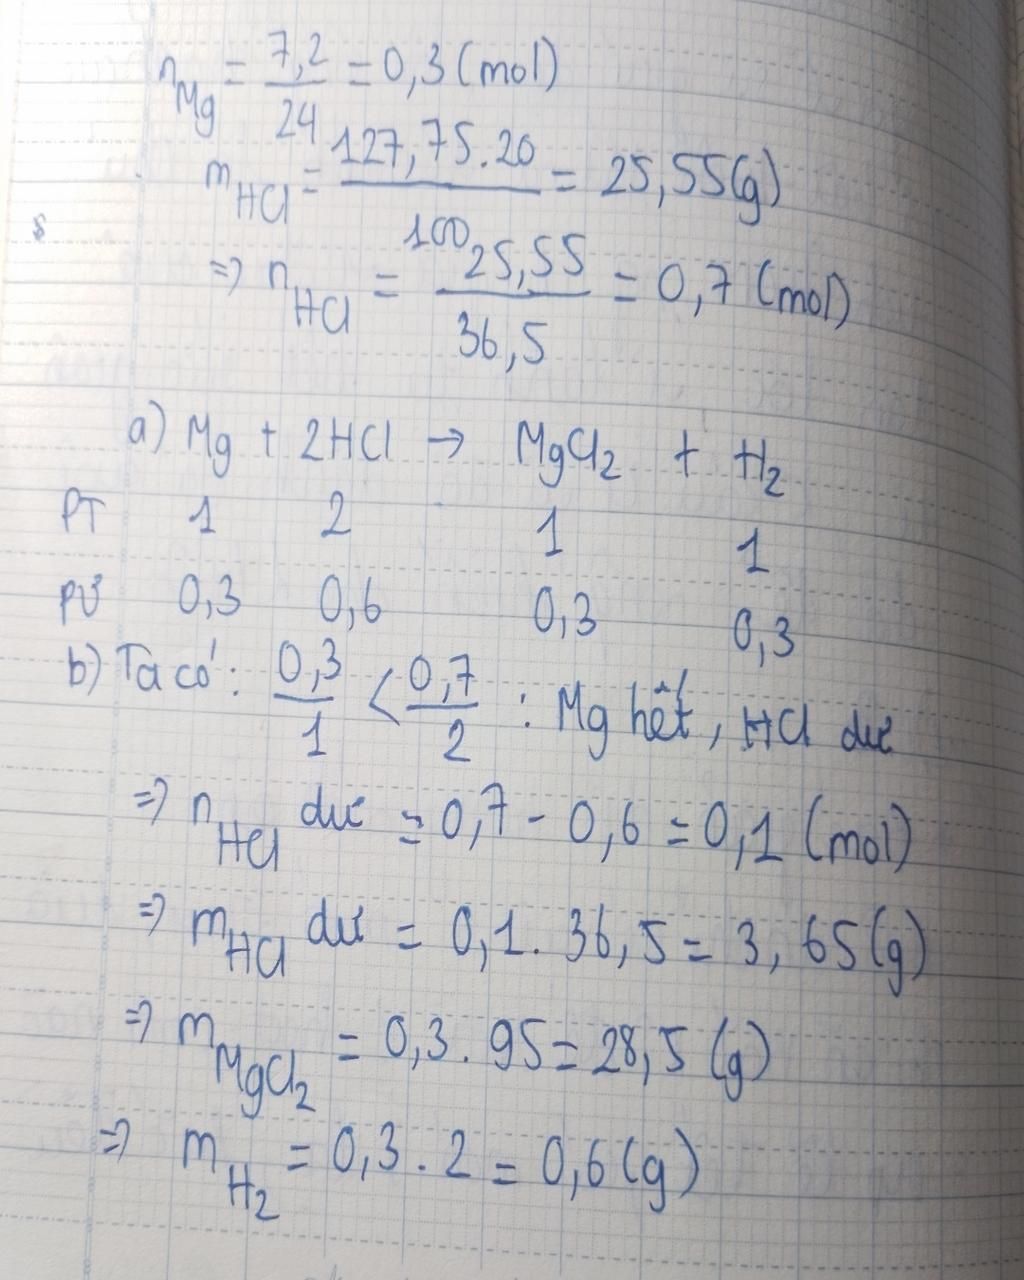 n_Mg = 7,2/24 = 0,3 (mol)
m_HCl = 127,75.20/100 = 25,55(g)
=> n_HCl = 25,55/36,5 = 0,7 (mol)
a) Mg + 2HCl → MgCl₂ + H₂
PT 1 2 1 1
PƯ 0,3 0,6 0,3 0,3
b) Ta có: 0,3/1 < 0,7/2 : Mg hết, HCl dư
=> n_HCl dư = 0,7 - 0,6 = 0,1 (mol)
=> m_HCl dư = 0,1. 36,5 = 3,65(g)
=> m_MgCl₂ = 0,3. 95 = 28,5 (g)
=> m_H₂ = 0,3. 2 = 0,6 (g)